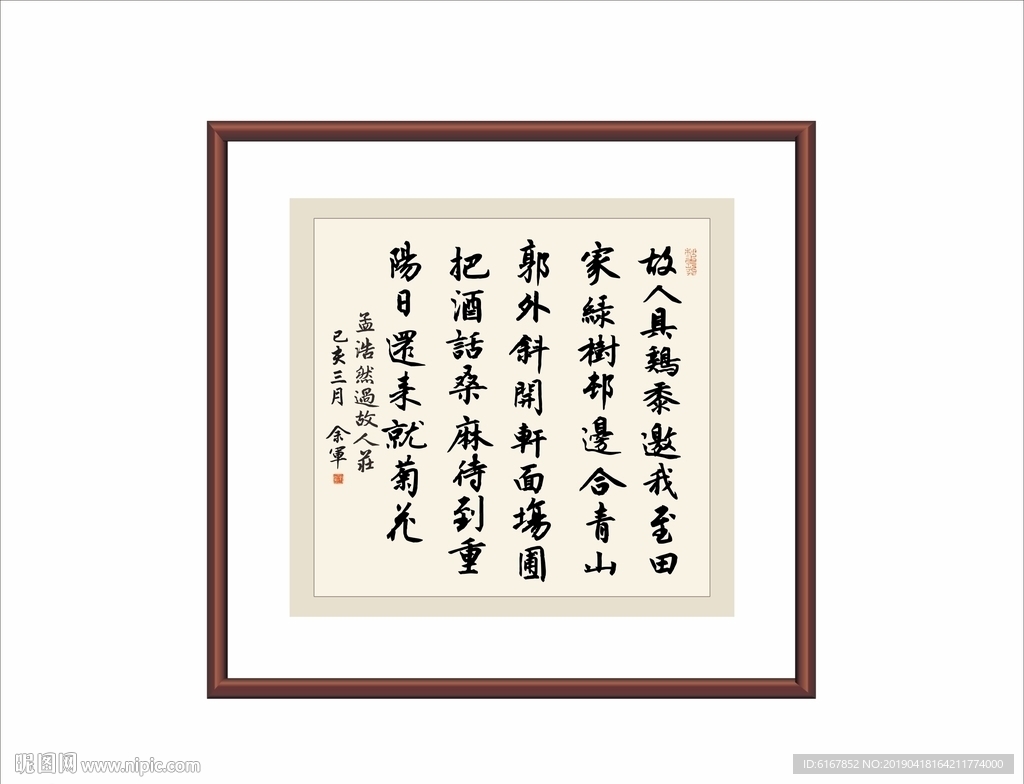 故人具鷄黍邀我至田
家緑樹邨邊合青山
郭外斜開軒面塲圃
把酒話桑麻待到重
陽日還来就菊花
孟浩然過故人莊
己亥三月 余軍
昵图网 www.nipic.com
ID:6167852 NO:20190418164211774000